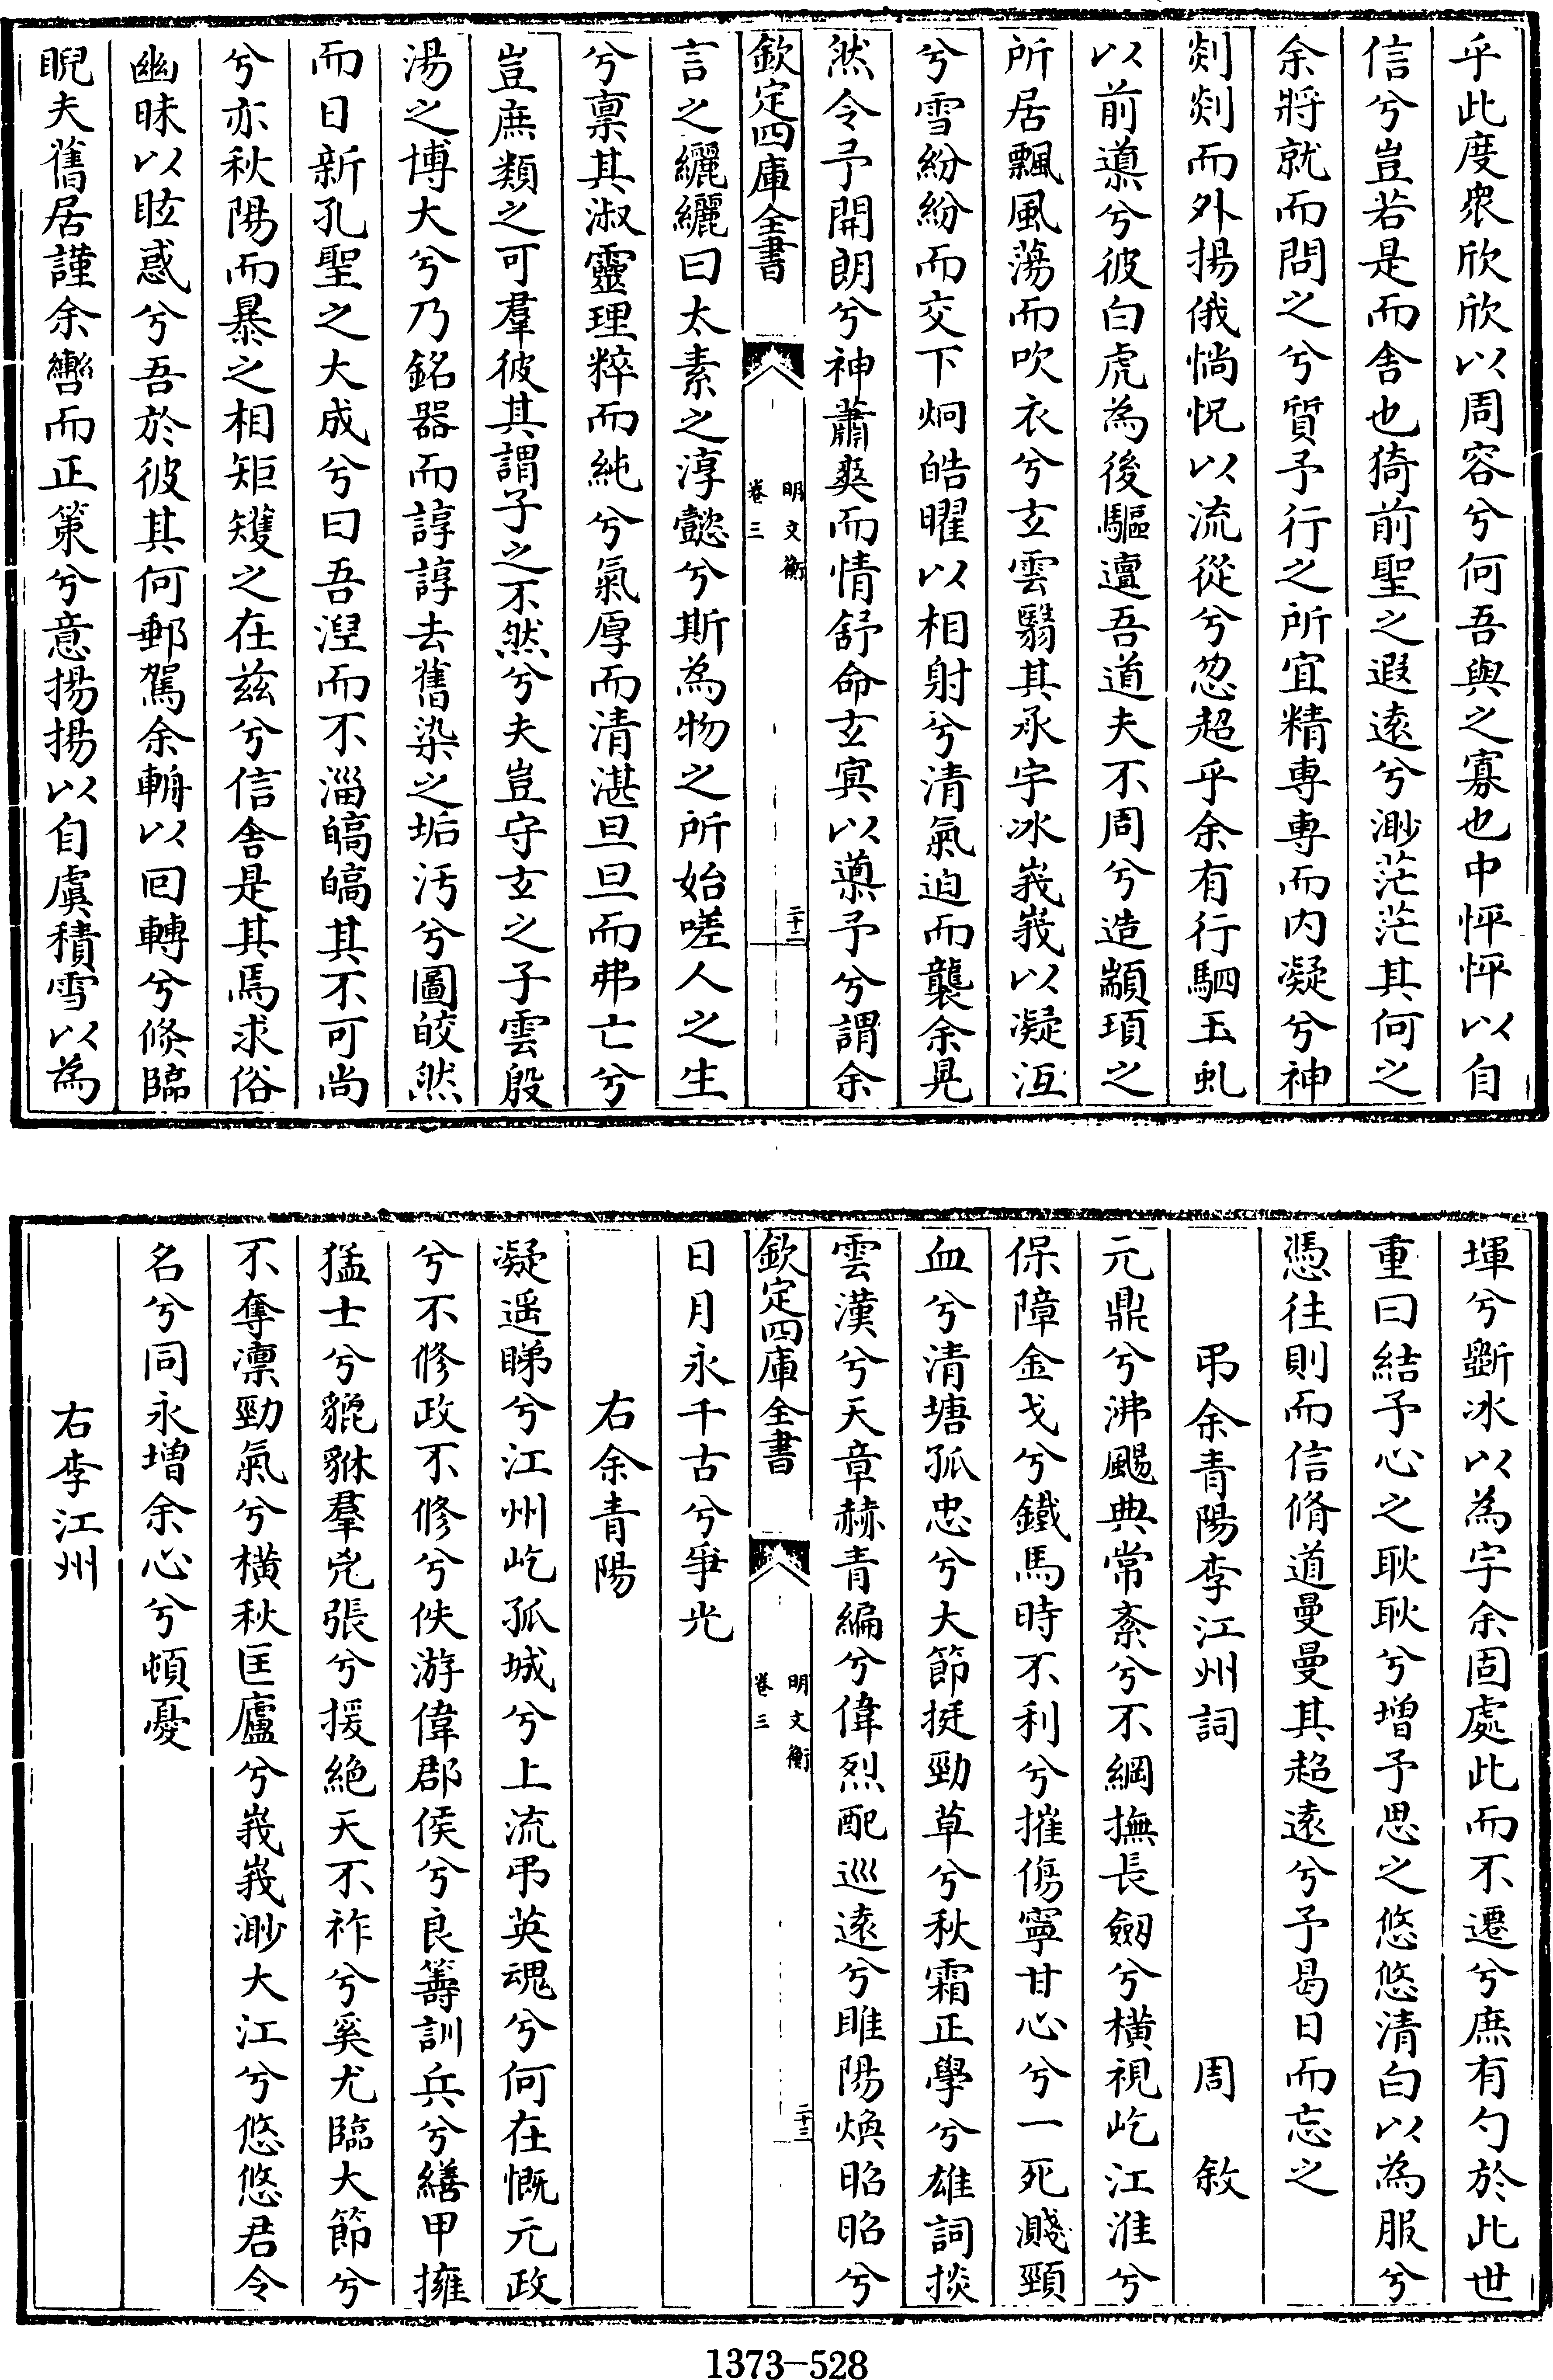 乎此度衆欣欣以周容兮何吾與之寡也中怦怦以自
信兮豈若是而舍也猗前聖之遐遠兮渺茫茫其何之
余將就而問之兮質予行之所宜精專專而内凝兮神
剡剡而外揚俄惝怳以流從兮忽超乎余有行駟玉虬
以前導兮彼白虎為後驅邅吾道夫不周兮造顓頊之
所居飄風蕩而吹衣兮玄雲翳其承宇冰峩峩以凝沍
兮雪紛紛而交下炯皓曜以相射兮清氣迫而襲余晃
然令予開朗兮神蕭爽而情舒命玄㝠以導予兮謂余
欽定四庫全書
明文衡
卷三
二十二
言之纚纚曰太素之淳懿兮斯為物之所始嗟人之生
兮禀其淑靈理粹而純兮氣厚而清湛旦旦而弗亡兮
豈庶類之可羣彼其謂子之不然兮夫豈守玄之子雲殷
湯之博大兮乃銘器而諄諄去舊染之垢汚兮圖皎然
而日新孔聖之大成兮曰吾湼而不淄皜皜其不可尚
兮亦秋陽而暴之相矩矱之在兹兮信舍是其焉求俗
幽昧以眩惑兮吾於彼其何郵駕余輈以囘轉兮倐臨
睨夫舊居謹余轡而正策兮意揚揚以自虞積雪以為
墠兮斵冰以為宇余固處此而不遷兮庶有勺於此世
重曰結予心之耿耿兮增予思之悠悠清白以為服兮
憑往則而信脩道曼曼其超遠兮予曷日而忘之
弔余青陽李江州詞 周敘
元鼎兮沸颺典常紊兮不綱撫長劔兮橫視屹江淮兮
保障金戈兮鐵馬時不利兮摧傷寧甘心兮一死濺頸
血兮清塘孤忠兮大節挺勁草兮秋霜正學兮雄詞掞
雲漢兮天章赫青編兮偉烈配巡遠兮睢陽煥昭昭兮
欽定四庫全書
明文衡
卷三
二十三
日月永千古兮爭光
右余青陽
凝遥睇兮江州屹孤城兮上流弔英魂兮何在慨元政
兮不修政不修兮佚游偉郡侯兮良籌訓兵兮繕甲擁
猛士兮貔貅羣兇張兮援絶天不祚兮奚尤臨大節兮
不奪凛勁氣兮橫秋匡廬兮峩峩渺大江兮悠悠君令
名兮同永增余心兮頓憂
右李江州
1373-528